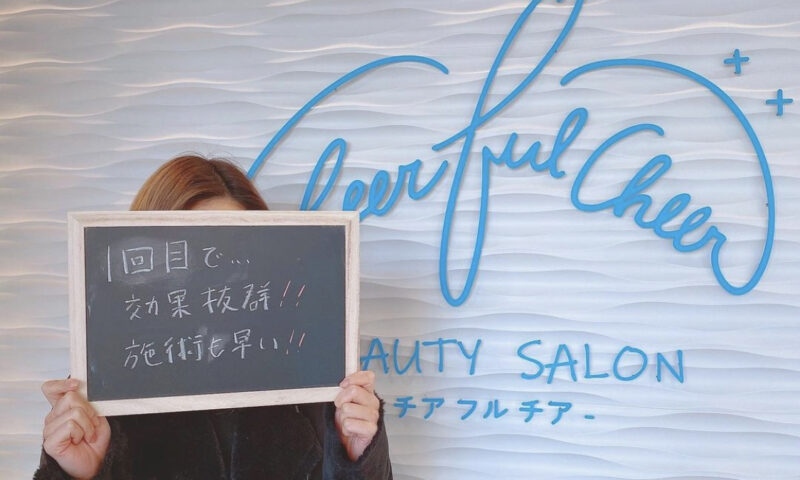 1回目で...
効果抜群!!
施術も早い!!
Cheerful Cheer
BEAUTY SALON
- チアフルチア -